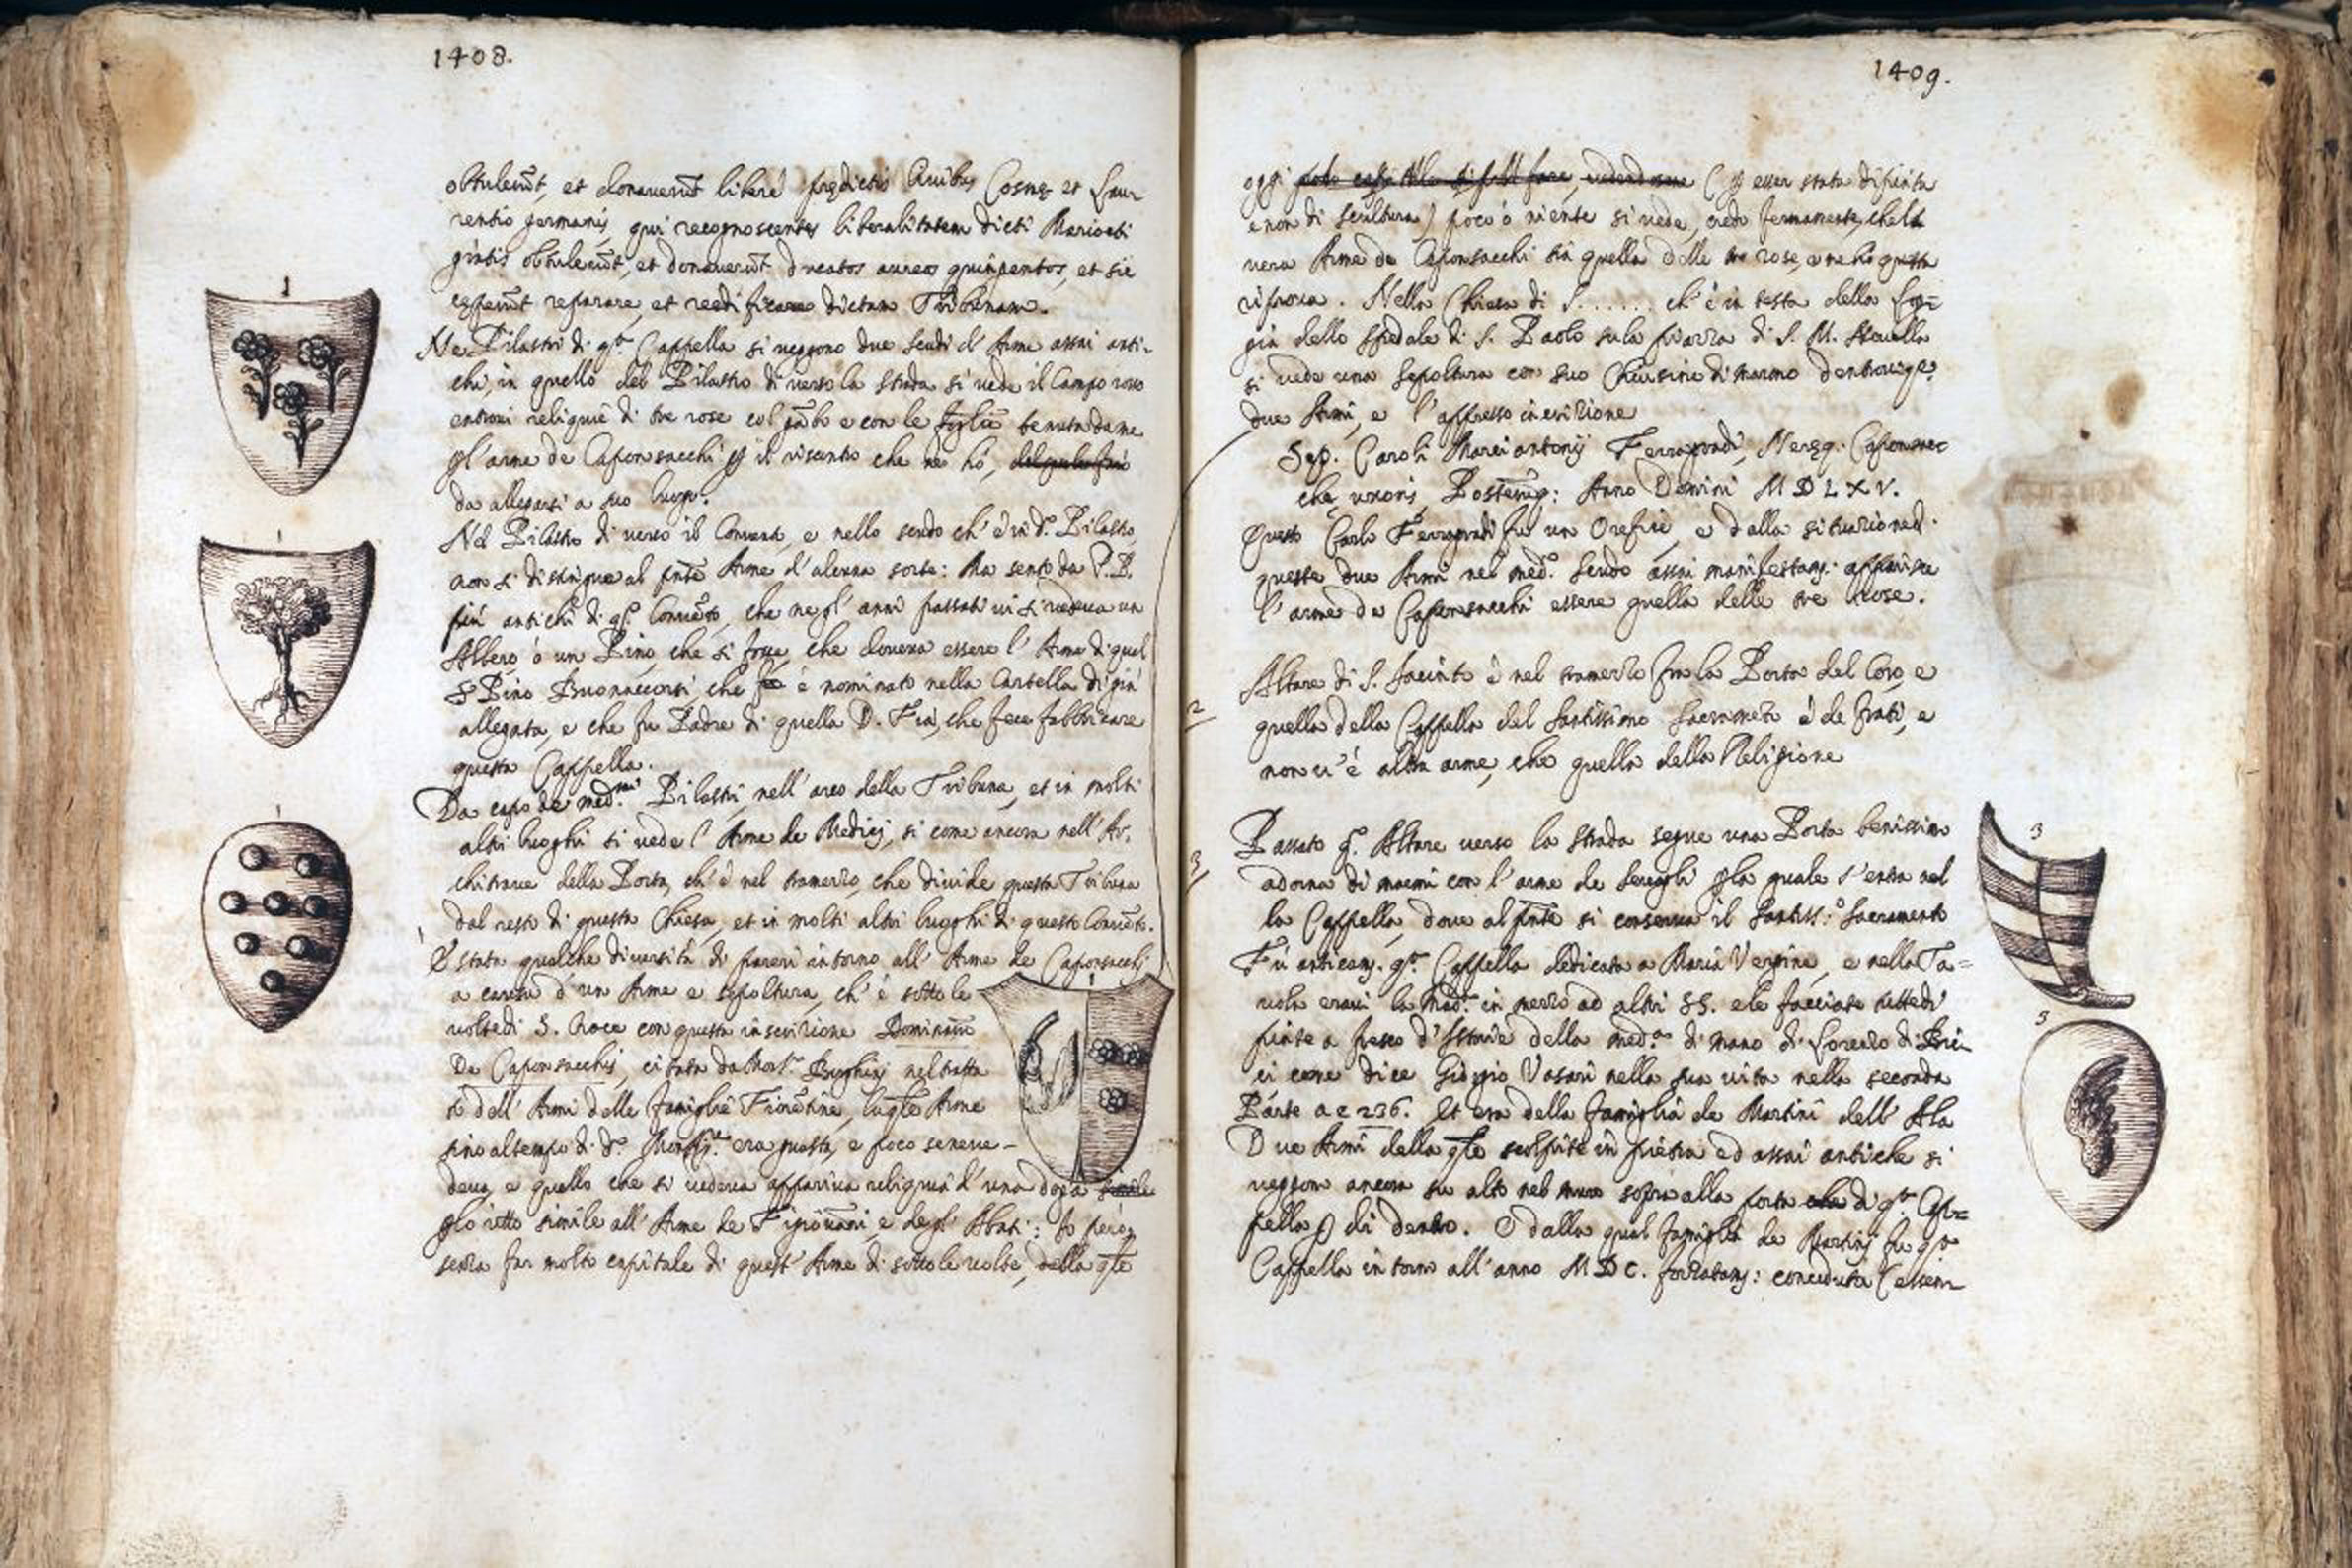 1408.
obtulerūt, et donaverūt liberè prędictis Civibus Cosmę et Lau-
rentio germanis, qui recognoscentes liberalitatem dicti Mariocti
gratis obtulerūt, et donaverūt ducatos aureos quingentos, et sic
ceperūt reparare, et reedificare dictam Tribunam.
Ne Pilastri di q.ta Cappella si veggono due scudi d'Arme assai anti-
chi, in quello del Pilastro di verso la strada si vede il Campo
entrovi reliquie di tre rose col gābo e con le foglie tenuta da me
pl'arme de Caponsacchi il riscontro che ne hò,
da allegarsi a suo luogo.
Nel Pilastro di verso il Convento, e nello scudo ch'è in d.o Pilastro,
non si distingue al pnte Arme d'alcuna sorte: Ma sento da P.P.
più antichi di q.o Convēto, che negl'anni passati vi si vedeva un
Albero, ò un Pino, che si fosse, che doveva essere l'Arme di quel
S. Pino Buonaccorsi che è nominato nella Cartella di già
allegata, e che fu Padre di quella D. Fia, che fece fabbricare
questa Cappella.
Da capo de med.mi Pilastri, nell'arco della Tribuna, et in molti
altri luoghi si vede l'Arme de Medici, si come ancora nell'Ar-
chitrave della Porta, ch'è nel tramezzo, che divide questa Tribuna
dal resto di questa Chiesa, et in molti altri luoghi di questo Convēto.
È stata qualche diversità di pareri intorno all'Arme de Caponsacchi
a causa d'un Arme e sepoltura, ch'è sotto le
volte di S. Croce con questa inscrizione
De Caponsacchis, citata da Borghini nel tratta
to dell'Armi delle famiglie Fiorētine, la qle Arme
sino al tempo di d.o era guasta, e poco se ne ve-
deva, e quello che si vedeva appariva reliquia d'una doga
simile all'Arme de Figiovanni, e degl'Abati: Io però
senza far molto capitale di quest'Arme di sotto le volte, della qle
1409.
oggi (p esser stata dipinta
e non di scultura) poco ò niente si vede, credo fermamente, che la
vera Arme de Caponsacchi sia quella delle tre rose, e ne ho questa
riprova. Nella Chiesa di S....... ch'è in testa della Log=
gia dello spedale di S. Paolo su la piazza di S. M. Novella
si vede una sepoltura con suo Chiusino di marmo dentrovi q.e
due Armi, e l'appresso inscrizione
Sep. Caroli Marci antonij Ferragradi, Nereę Caponsac
chę uxoris, Posterūq: Anno Domini M D L X V.
Questo Carlo fu un Orefice, e dalla situazione di
queste due Armi nel med.o scudo assai manifestam. apparisce
l'arme de Caponsacchi essere quella delle tre Rose.
2
Altare di S. Jacinto è nel tramezzo fra la Porta del Coro, e
quella della Cappella del Santissimo Sacramēto è de frati, e
non vi è altra arme, che quella della Religione
3
Passato q.o Altare verso la strada segue una Porta benissimo
adorna di marmi con l'arme de p la quale s'entra nel
la Cappella, dove al pnte si conserva il Santiss:o Sacramento
Fù anticam. q.ta Cappella dedicata a Maria Vergine, e nella Ta=
vola eravi la Mad.a in mezzo ad altri SS. e le facciate tutte di
pinte a fresco d'Istorie della med.a di mano di Lorenzo di Bic
ci come dice Giorgio Vasari nella sua vita nella seconda
Parte a c 236. Et era della famiglia de Martini dell'Ala
Due Armi della qle scolpite in pietra ed assai antiche si
veggono ancora su alto nel muro sopra alla porta di q.ta Cap=
pella p di dentro. E dalla qual famiglia de Martini fu q.ta
Cappella intorno all'anno M D C. conceduta (essen-
1
1
1
1
3
3